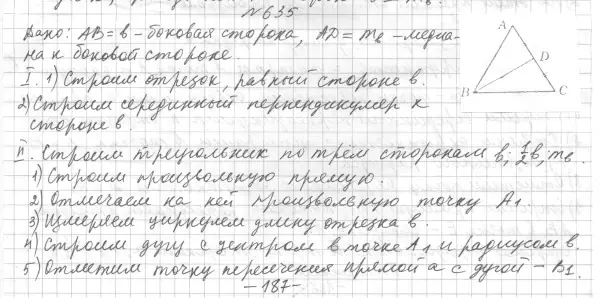 №635
Дано: AB = b – боковая сторона, AD = m_b – медиа-
на к боковой стороне.
I. 1) Строим отрезок, равный стороне b.
2) Строим серединный перпендикуляр к
стороне b.
II. Строим треугольник по трём сторонам b; 1/2 b; m_b.
1) Строим произвольную прямую.
2) Отмечаем на ней произвольную точку A₁.
3) Измеряем циркулем длину отрезка b.
4) Строим дугу с центром в точке A₁ и радиусом b.
5) Отметим точку пересечения прямой a с дугой – B₁.
– 187 –
A
D
B
C